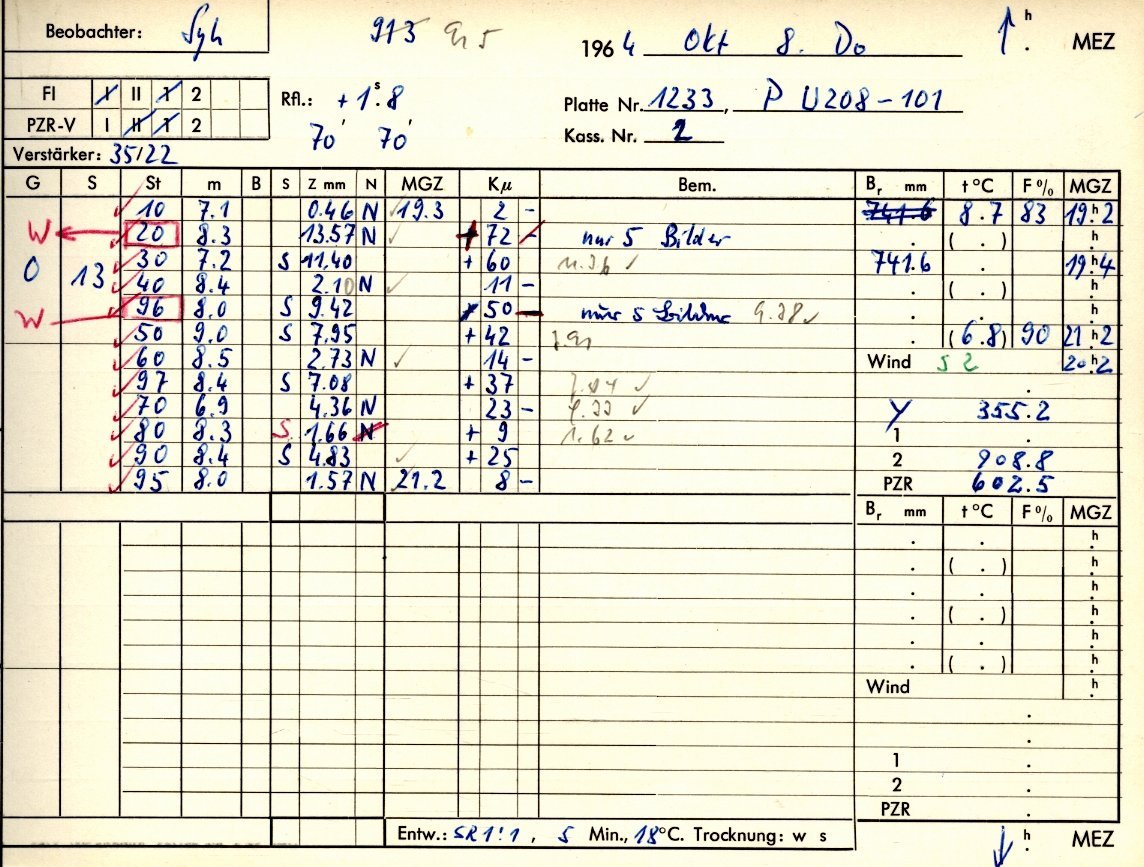 Beobachter: Syh 913 1964 Okt 8. Do h . MEZ
FI I II 1 2 Rfl.: + 1ˢ.8 Platte Nr. 1233, P U208-101
PZR-V I II 1 2 70' 70' Kass. Nr. 2
Verstärker: 35/22
G S St m B S Z mm N MGZ Kμ Bem. Bᵣ mm t °C F % MGZ
10 7.1 0.46 N 19.3 2 - 741.6 8.7 83 19ʰ.2
W 20 8.3 13.57 N + 72 - nur 5 Bilder . ( . ) h .
0 13 30 7.2 S 11.40 + 60 11.36 741.6 . 19ʰ.4
40 8.4 2.10 N 11 - . ( . ) h .
W 96 8.0 S 9.42 50 - nur 5 Bilder 9.38 . . h .
50 9.0 S 7.95 + 42 . (6.8) 90 21ʰ.2
60 8.5 2.73 N 14 - Wind S 2 20ʰ.2
97 8.4 S 7.08 + 37 7.04
70 6.9 4.36 N 23 - 4.33 Y 355.2
80 8.3 S 1.66 N + 9 1.62 1 .
90 8.4 S 4.83 + 25 2 908.8
95 8.0 1.57 N 21.2 8 - PZR 602.5
Bᵣ mm t °C F % MGZ
. . h .
. ( . ) h .
. . h .
. ( . ) h .
. . h .
. ( . ) h .
Wind h .
.
.
1 .
2 .
PZR .
Entw.: SR 1:1 , 5 Min., 18°C. Trocknung: w s h . MEZ